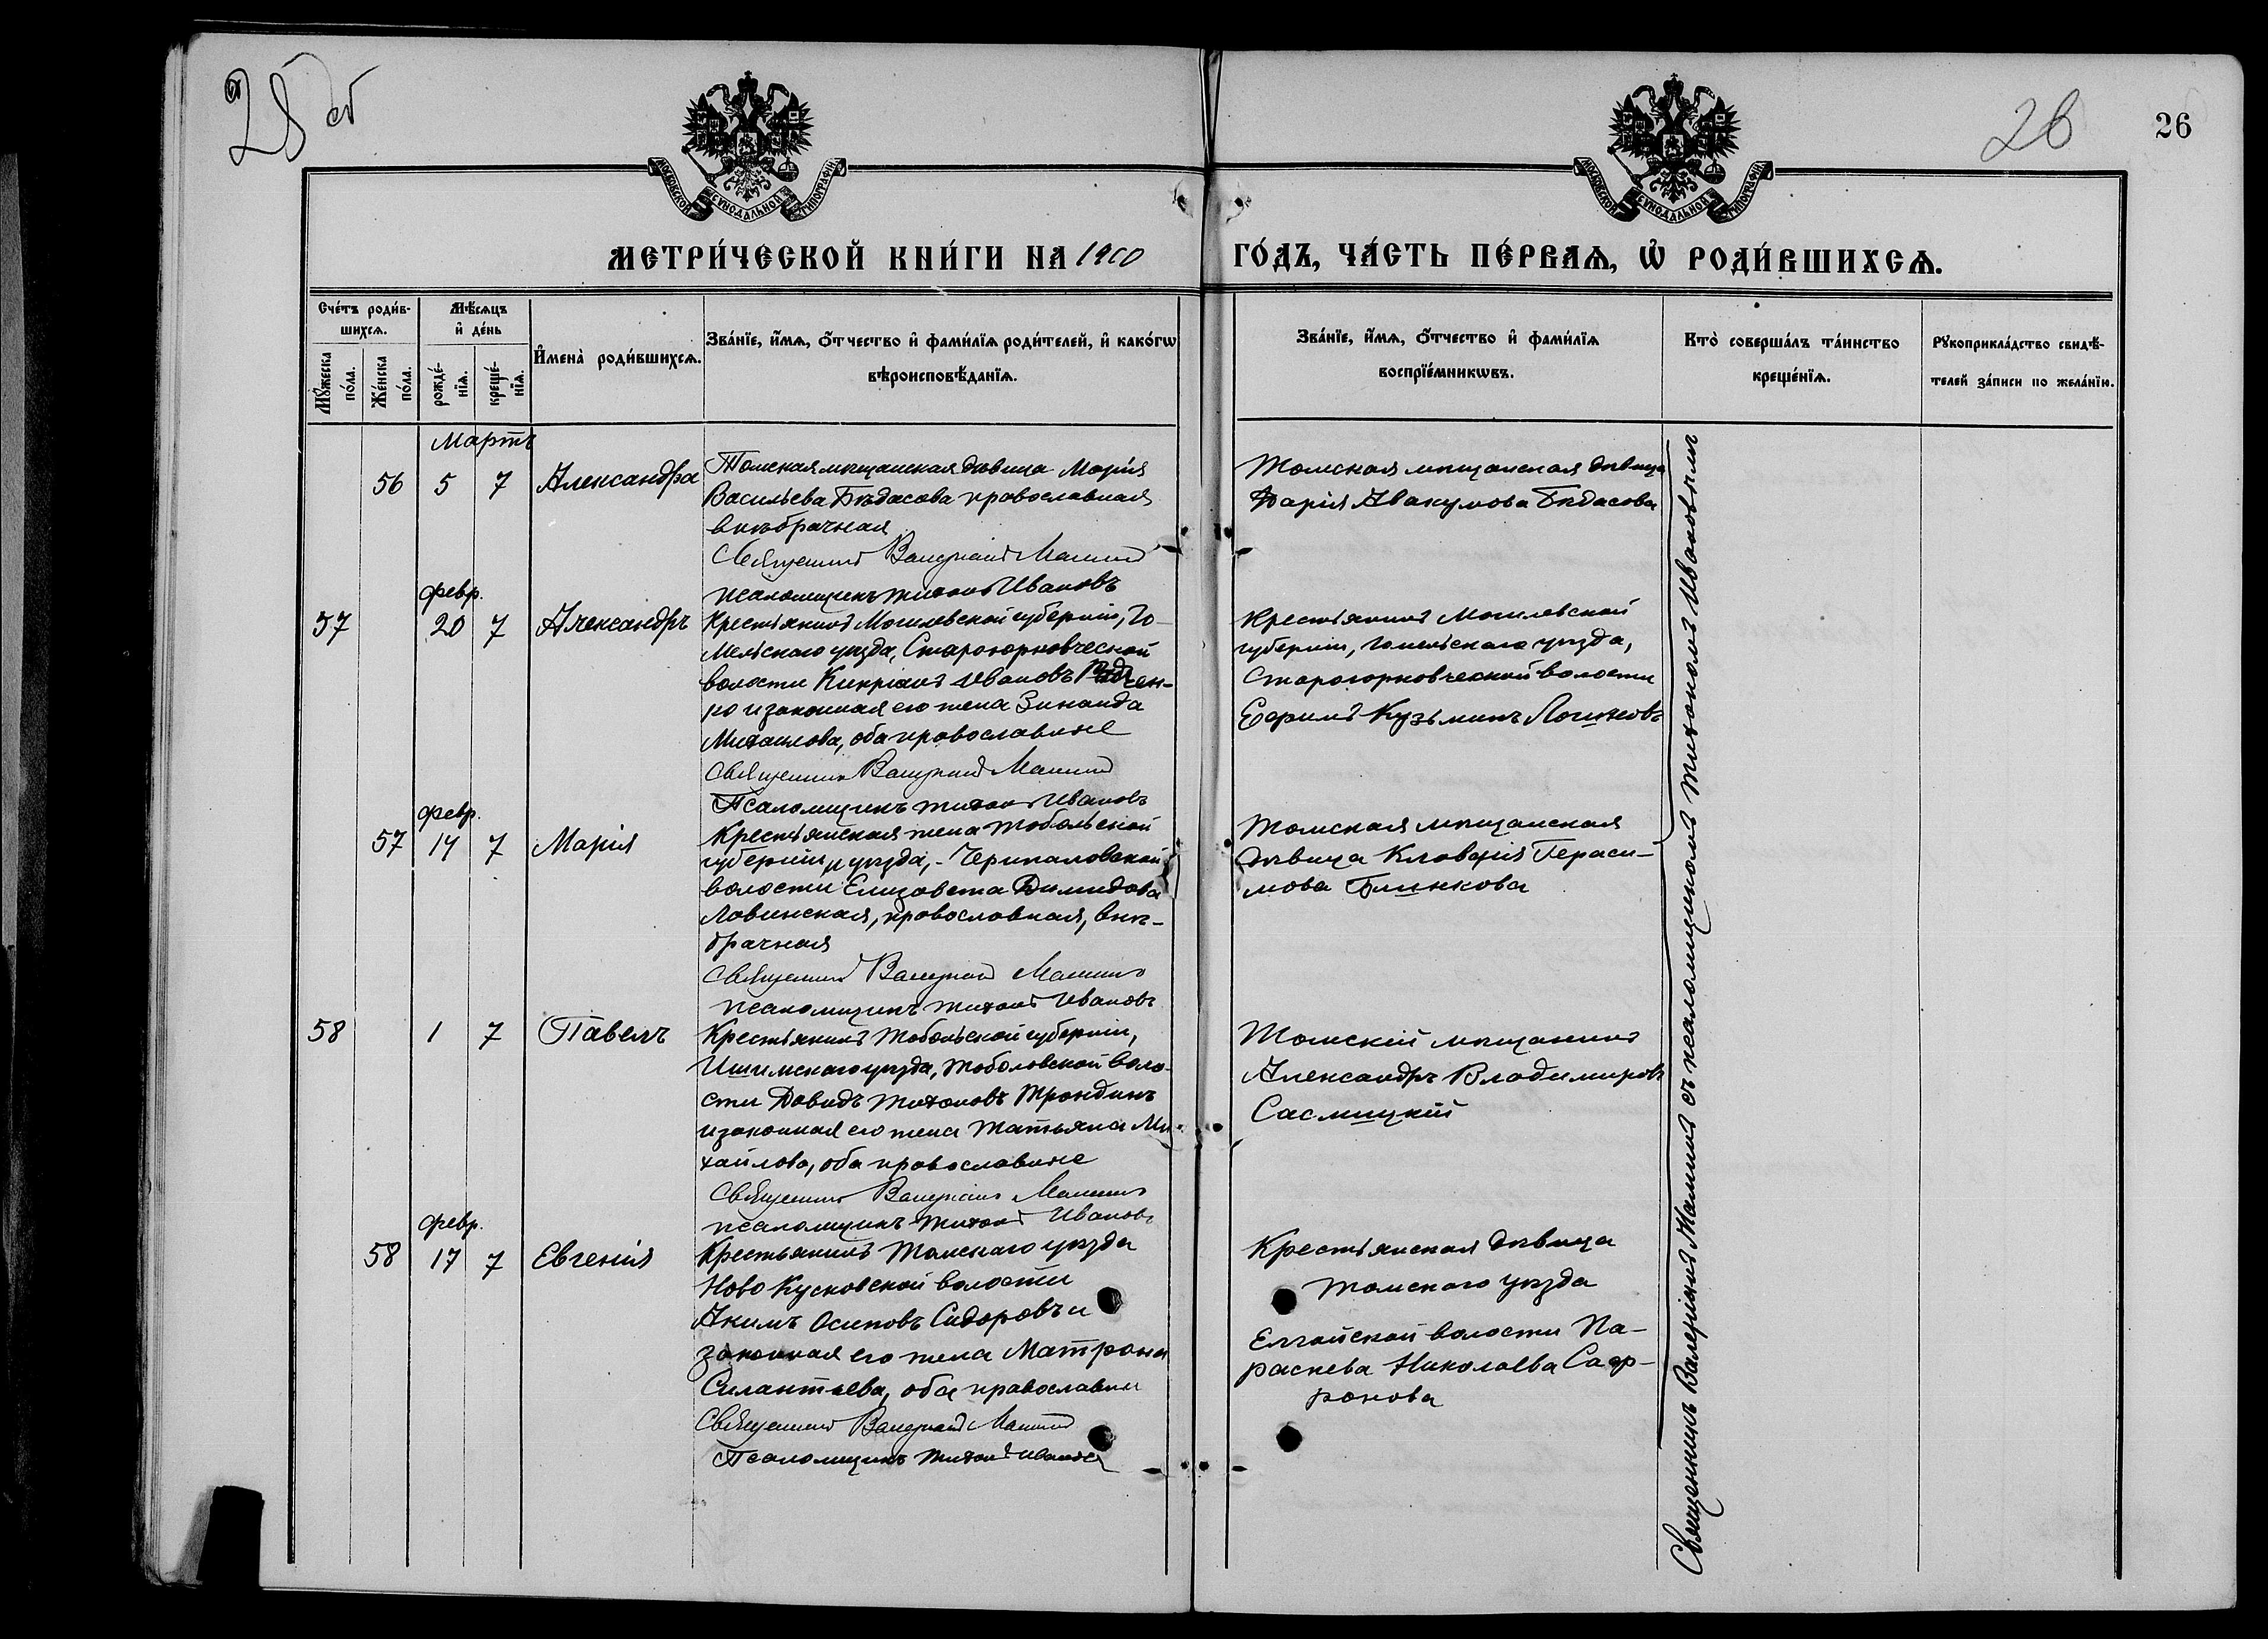 25 об
26
26
МОСКОВСКОЙ СѴНОДАЛЬНОЙ ТИПОГРАФІИ
МОСКОВСКОЙ СѴНОДАЛЬНОЙ ТИПОГРАФІИ
МЕТРИ́ЧЕСКОЙ КНИ́ГИ НА 1900 ГО́ДЪ, ЧА́СТЬ ПЕ́РВАѦ, Ѡ҆ РОДИ́ВШИХСѦ.
Сче́тъ роди́в-
шихсѧ.
Мꙋ́жеска
по́ла.
Же́нска
по́ла.
Мѣ́сѧцъ
и҆ де́нь
рожде́-
нїѧ.
креще́-
нїѧ.
И҆мена̀ роди́вшихсѧ.
Зва́нїе, и҆́мѧ, ѻ҆́тчество и҆ фами́лїѧ роди́телей, и҆ како́гѡ
вѣроисповѣ́данїѧ.
Зва́нїе, и҆́мѧ, ѻ҆́тчество и҆ фами́лїѧ
воспрїе́мникѡвъ.
Кто̀ соверша́лъ та́инство
креще́нїѧ.
Рꙋкоприкла́дство свидѣ́-
телей за́писи по жела́нїю.
Мартъ
56 5 7 Александра
Томская мѣщанская дѣвица Марія
Васильева Бѣдасова православная
внѣбрачная
Священникъ Валеріанъ Маминъ
псаломщикъ Тихонъ Ивановъ
Томская мѣщанская дѣвица
Дарія Авакумова Бѣдасова
февр.
57 20 7 Александръ
Крестьянинъ Могилевской губерніи, Го-
мельскаго уѣзда, Староюрковческой
волости Кипріанъ Ивановъ
и законная его жена Зинаида
Михаилова, оба православные
Священникъ Валеріанъ Маминъ
Псаломщикъ Тихонъ Ивановъ
Крестьянинъ Могилевской
губерніи, Гомельскаго уѣзда,
Староюрковческой волости
Ефримъ Кузьминъ Логиновъ
февр.
57 14 7 Марія
Крестьянская жена Тобольской
губерніи и уѣзда,- Черипаловской
волости Елизавета Димидова
Лавинская, православная, внѣ-
брачная
Священникъ Валеріанъ Маминъ
псаломщикъ Тихонъ Ивановъ
Томская мѣщанская
дѣвица Клавдія Гераси-
мова Блинкова
58 1 7 Павелъ
Крестьянинъ Тобольской губерніи,
Ишимскаго уѣзда, Тоболовской воло-
сти Давидъ Тихоновъ Трондинъ
и законная его жена Татьяна Ми-
хайлова, оба православные
Священникъ Валеріанъ Маминъ
псаломщикъ Тихонъ Ивановъ
Томскій мѣщанинъ
Александръ Владимировъ
Сасмицкій
февр.
58 17 7 Евгенія
Крестьянинъ Томскаго уѣзда
Ново Кусковской волости
Акимъ Осиповъ Сидоровъ и
законная его жена Матрона
Силантьева, оба православны
Священникъ Валеріанъ Маминъ
Псаломщикъ Тихонъ Ивановъ
Крестьянская дѣвица
Томскаго уѣзда
Елгайской волости Па-
раскева Николаева Саф-
ронова
Священникъ Валеріанъ Маминъ съ псаломщикомъ Тихономъ Ивановымъ